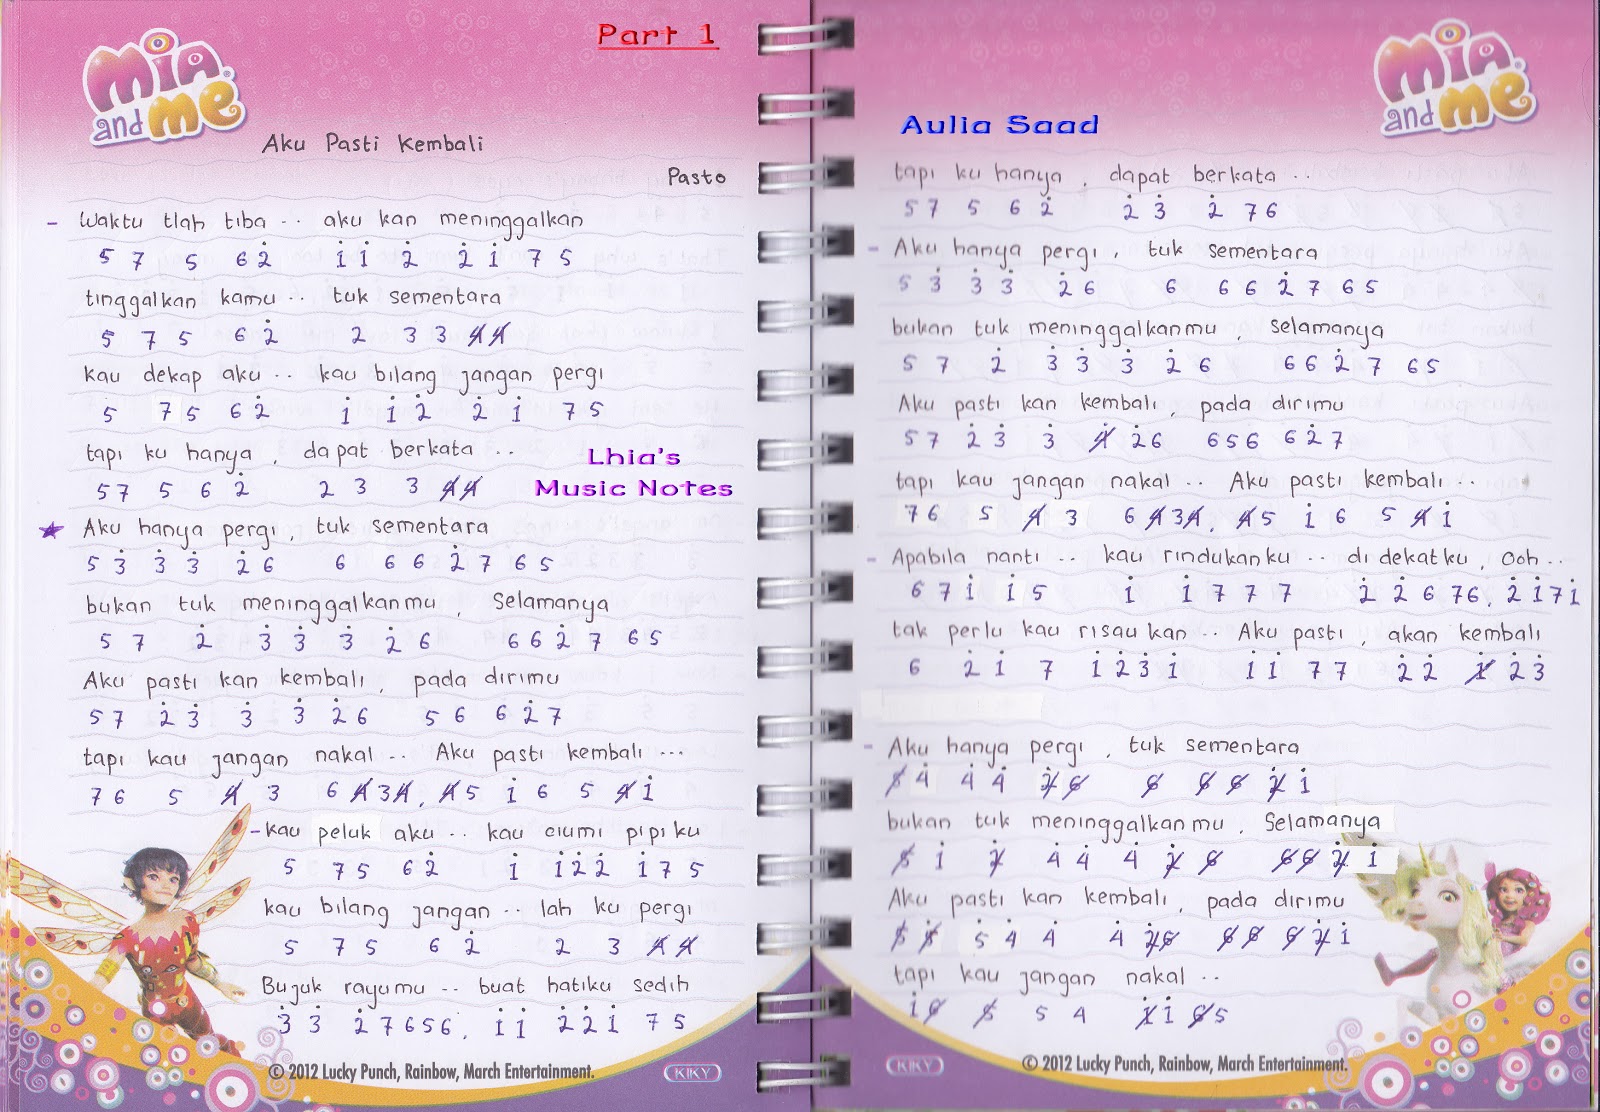 Part 1
mia and me
Aku Pasti Kembali
Pasto
- Waktu tlah tiba .. aku kan meninggalkan
5 7 5 6 2̇ 1̇ 1̇ 2̇ 2̇ 1̇ 7 5
tinggalkan kamu .. tuk sementara
5 7 5 6 2̇ 2 3 3 4̸ 4̸
kau dekap aku .. kau bilang jangan pergi
5 7 5 6 2̇ 1̇ 1̇ 2̇ 2̇ 1̇ 7 5
tapi ku hanya , dapat berkata ..
5 7 5 6 2̇ 2 3 3 4̸ 4̸
Lhia's
Music Notes
★ Aku hanya pergi , tuk sementara
5 3̇ 3̇ 3̇ 2̇ 6 6 6 6 2̇ 7 6 5
bukan tuk meninggalkanmu , Selamanya
5 7 2̇ 3̇ 3̇ 3̇ 2̇ 6 6 6 2̇ 7 6 5
Aku pasti kan kembali , pada dirimu
5 7 2̇ 3̇ 3̇ 3̇ 2̇ 6 5 6 6 2̇ 7
tapi kau jangan nakal .. Aku pasti kembali ...
7 6 5 4̸ 3 6 4̸ 3 4̸ , 4̸ 5 1̇ 6 5 4̸ 1̇
- kau peluk aku .. kau ciumi pipiku
5 7 5 6 2̇ 1̇ 1̇ 2̇ 2̇ 1̇ 7 5
kau bilang jangan .. lah ku pergi
5 7 5 6 2̇ 2 3 4̸ 4̸
Bujuk rayumu .. buat hatiku sedih
3̇ 3̇ 2̇ 7 6 5 6 , 1̇ 1̇ 2̇ 2̇ 1̇ 7 5
© 2012 Lucky Punch, Rainbow, March Entertainment.
KIKY
mia and me
Aulia Saad
tapi ku hanya , dapat berkata ..
5 7 5 6 2̇ 2̇ 3̇ 2̇ 7 6
- Aku hanya pergi , tuk sementara
5 3̇ 3̇ 3̇ 2̇ 6 6 6 6 2̇ 7 6 5
bukan tuk meninggalkanmu , Selamanya
5 7 2̇ 3̇ 3̇ 3̇ 2̇ 6 6 6 2̇ 7 6 5
Aku pasti kan kembali , pada dirimu
5 7 2̇ 3̇ 3̇ 4̸̇ 2̇ 6 6 5 6 6 2̇ 7
tapi kau jangan nakal .. Aku pasti kembali ..
7 6 5 4̸ 3 6 4̸ 3 4̸ , 4̸ 5 1̇ 6 5 4̸ 1̇
- Apabila nanti .. kau rindukanku .. di dekatku , Ooh ..
6 7 1̇ 1̇ 5 1̇ 1̇ 7 7 7 2̇ 2̇ 6 7 6 , 2̇ 1̇ 7 1̇
tak perlu kau risau kan .. Aku pasti , akan kembali
6 2̇ 1̇ 7 1̇ 2̇ 3̇ 1̇ 1̇ 1̇ 7 7 2̇ 2̇ 1̸̇ 2̇ 3̇
- Aku hanya pergi , tuk sementara
5̸ 4̇ 4̇ 4̇ 2̸̇ 6̸ 6̸ 6̸ 6̸ 2̸̇ 1̇
bukan tuk meninggalkanmu , Selamanya
5̸ 1̇ 2̸̇ 4̇ 4̇ 4̇ 2̸̇ 6̸ 6̸ 6̸ 2̸̇ 1̇
Aku pasti kan kembali , pada dirimu
5̸ 6̸̇ 5̇ 4̇ 4̇ 4̇ 2̸̇ 6̸ 6̸ 6̸ 6̸ 2̸̇ 1̇
tapi kau jangan nakal ..
1̇ 6̸ 6̸ 5 4 1̸̇ 1̇ 6̸ 5
© 2012 Lucky Punch, Rainbow, March Entertainment.
KIKY